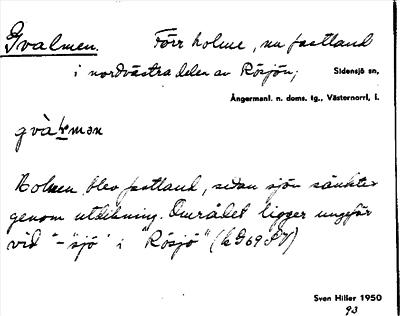 Gvalmen. Förr holme, nu fastland
i nordvästra delen av Rösjön; Sidensjö sn,
Ångermanl. n. doms. tg., Västernorrl, l.
Holmen blev fastland, sedan sjön sänkts
genom utdikning. Området ligger ungefär
vid "-sjö" i "Rösjö" (
Sven Hiller 1950
93